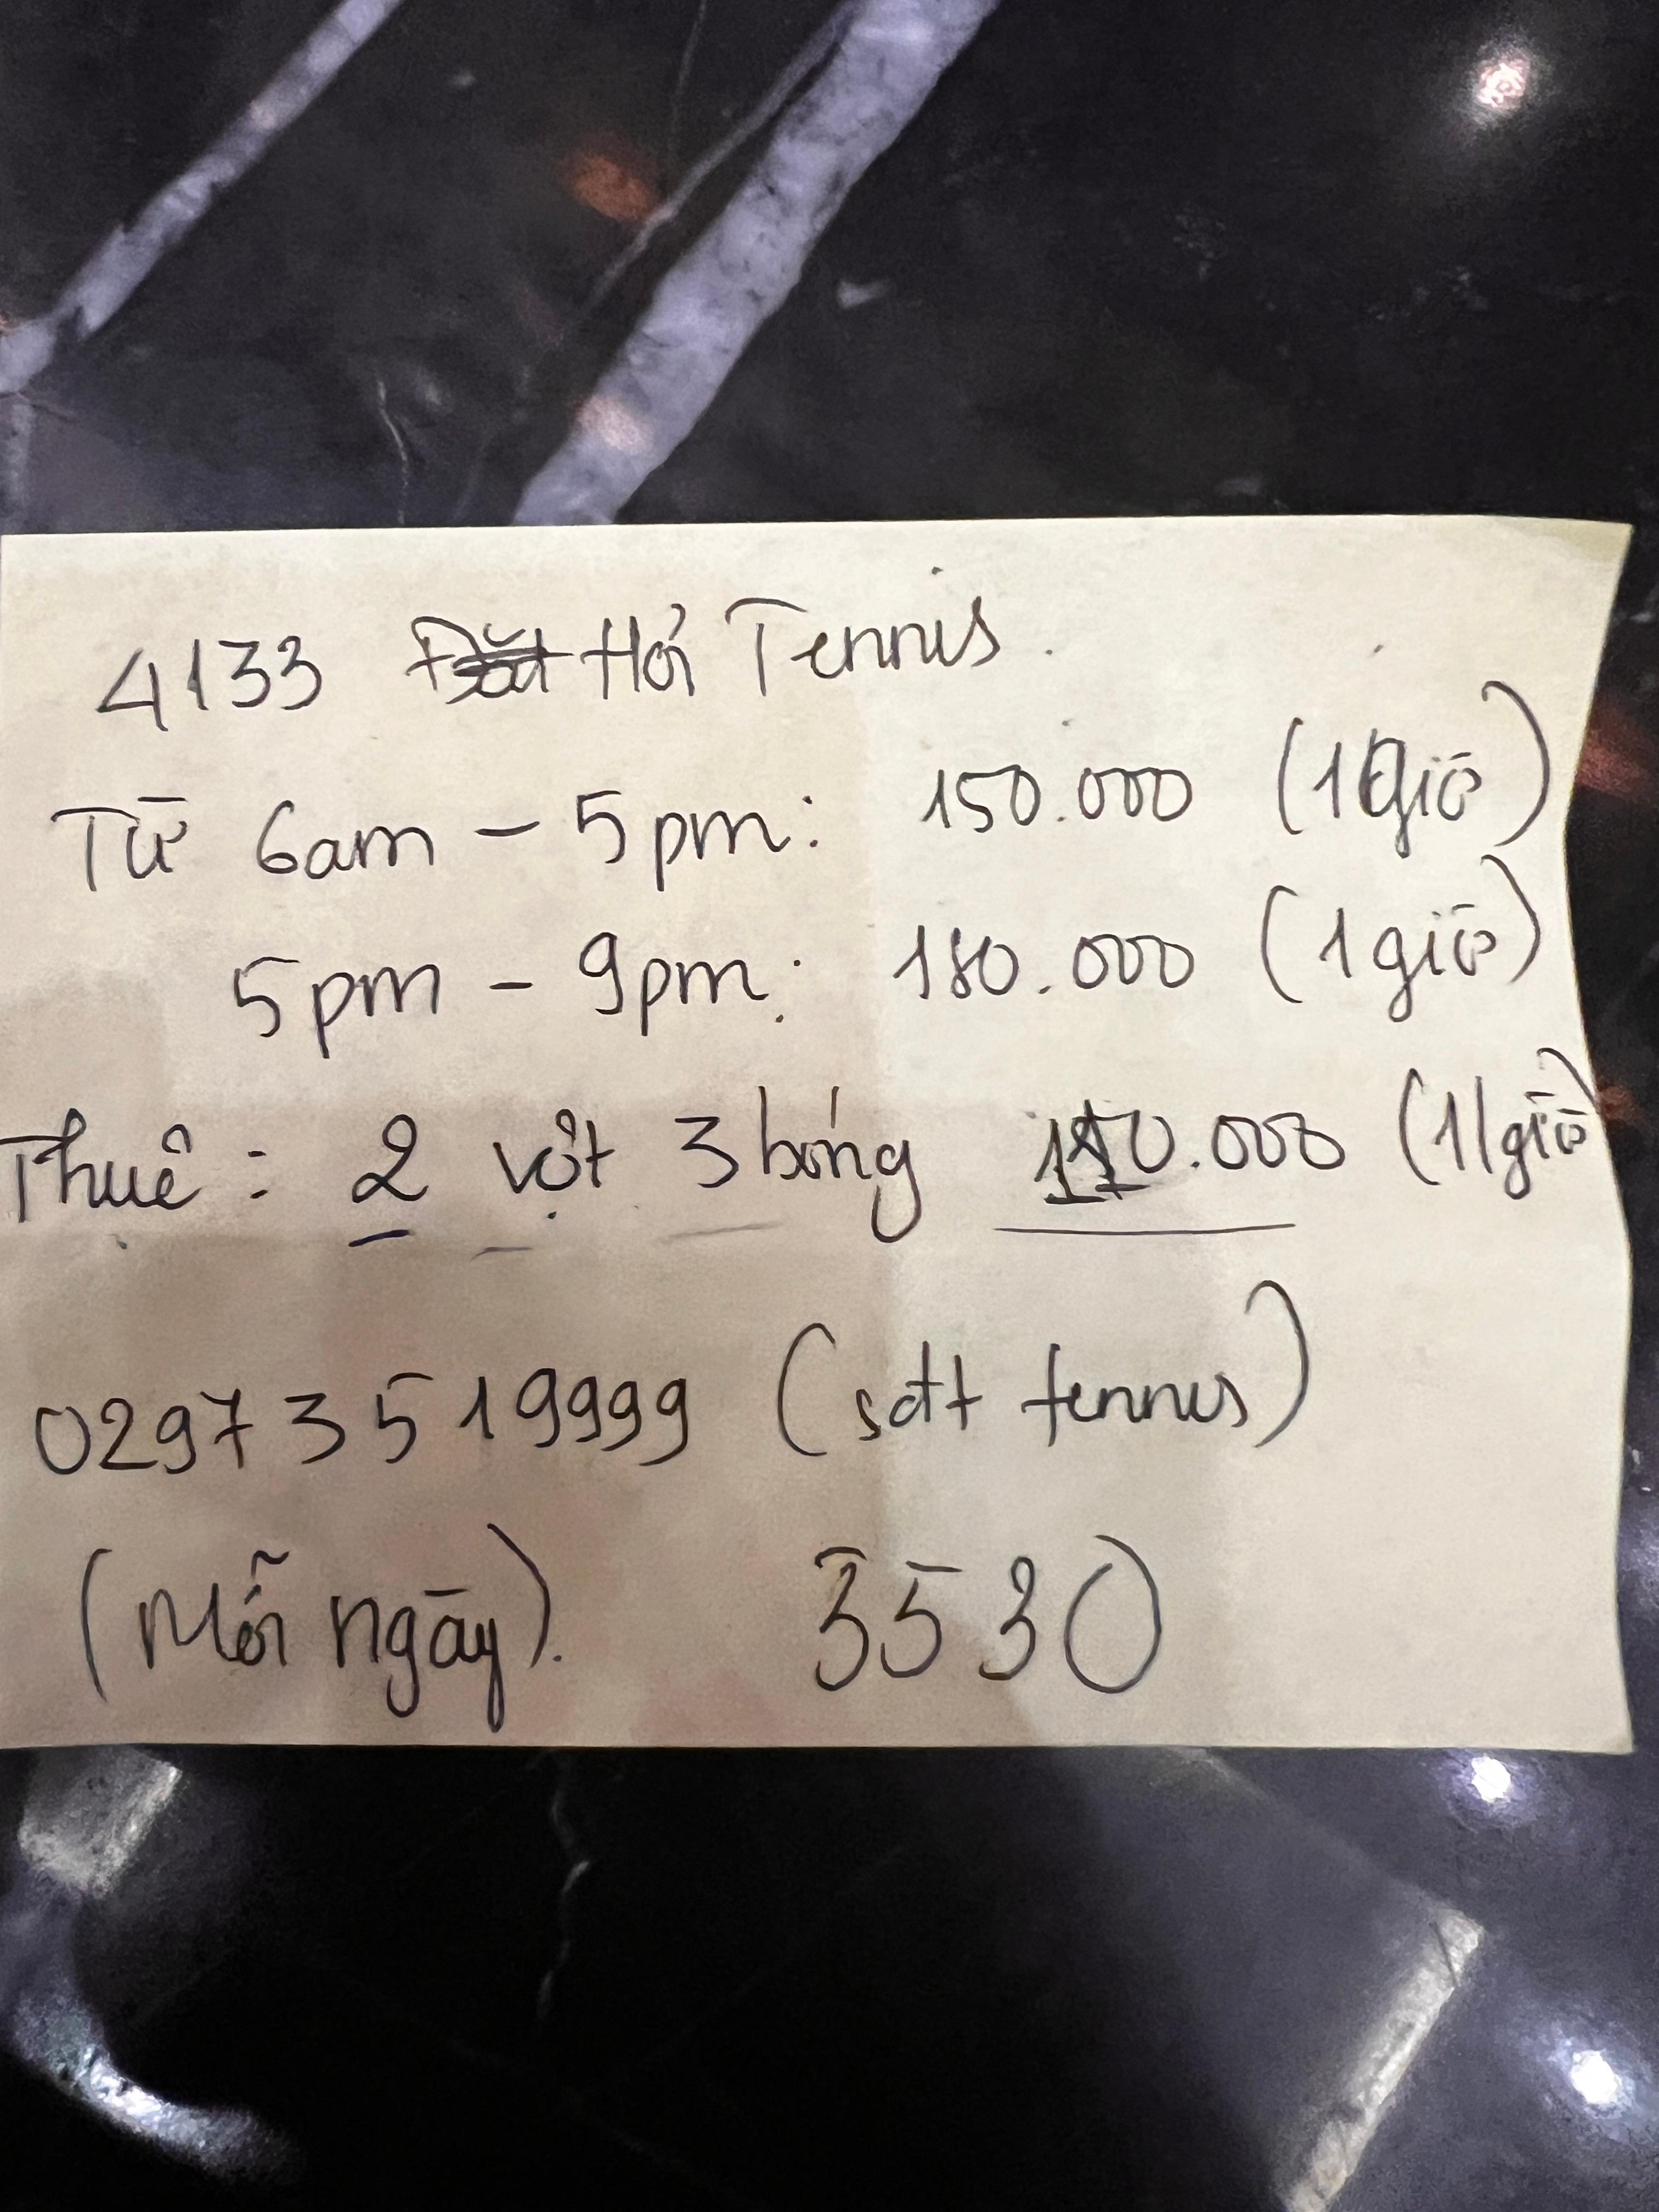 4133 Hỏi Tennis.
Từ 6am - 5pm: 150.000 (1 giờ)
5pm - 9pm: 180.000 (1 giờ)
Thuê: 2 vợt 3 bóng 110.000 (1 giờ)
02973519999 (sđt tennis)
(Mỗi ngày). 3530